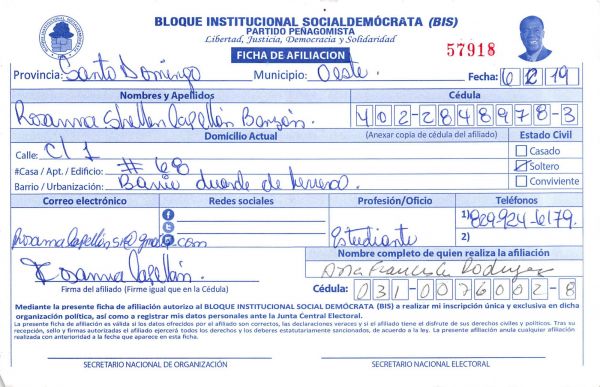 BLOQUE INSTITUCIONAL SOCIALDEMÓCRATA (BIS)
PARTIDO PEÑAGOMISTA
Libertad, Justicia, Democracia y Solidaridad
FICHA DE AFILIACION
57918
Provincia: Santo Domingo Municipio: Oeste. Fecha: 6 2 19
Nombres y Apellidos Cédula
Rosanna Capellán 402-2848978-3
Domicilio Actual (Anexar copia de cédula del afiliado) Estado Civil
Calle: C/ 1 Casado
#Casa / Apt. / Edificio: #68 Soltero
Barrio / Urbanización: Barrio Conviviente
Correo electrónico Redes sociales Profesión/Oficio Teléfonos
1) 829-924-6179.
Estudiante 2)
Nombre completo de quien realiza la afiliación
Rosanna Capellán. Francisca Rodriguez
Firma del afiliado (Firme igual que en la Cédula) Cédula: 031-0076002-8
Mediante la presente ficha de afiliación autorizo al BLOQUE INSTITUCIONAL SOCIAL DEMÓCRATA (BIS) a realizar mi inscripción única y exclusiva en dicha
organización política, así como a registrar mis datos personales ante la Junta Central Electoral.
La presente ficha de afiliación es válida si los datos ofrecidos por el afiliado son correctos, las declaraciones veraces y si el afiliado tiene el disfrute de sus derechos civiles y políticos. Tras su
recepción, sello y firmas autorizadas el afiliado ejercerá todos los derechos y los deberes estatutariamente sancionados, de acuerdo a la ley. La presente afiliación anula cualquier afiliación
realizada con anterioridad a la fecha que aparece en esta ficha.
SECRETARIO NACIONAL DE ORGANIZACIÓN SECRETARIO NACIONAL ELECTORAL